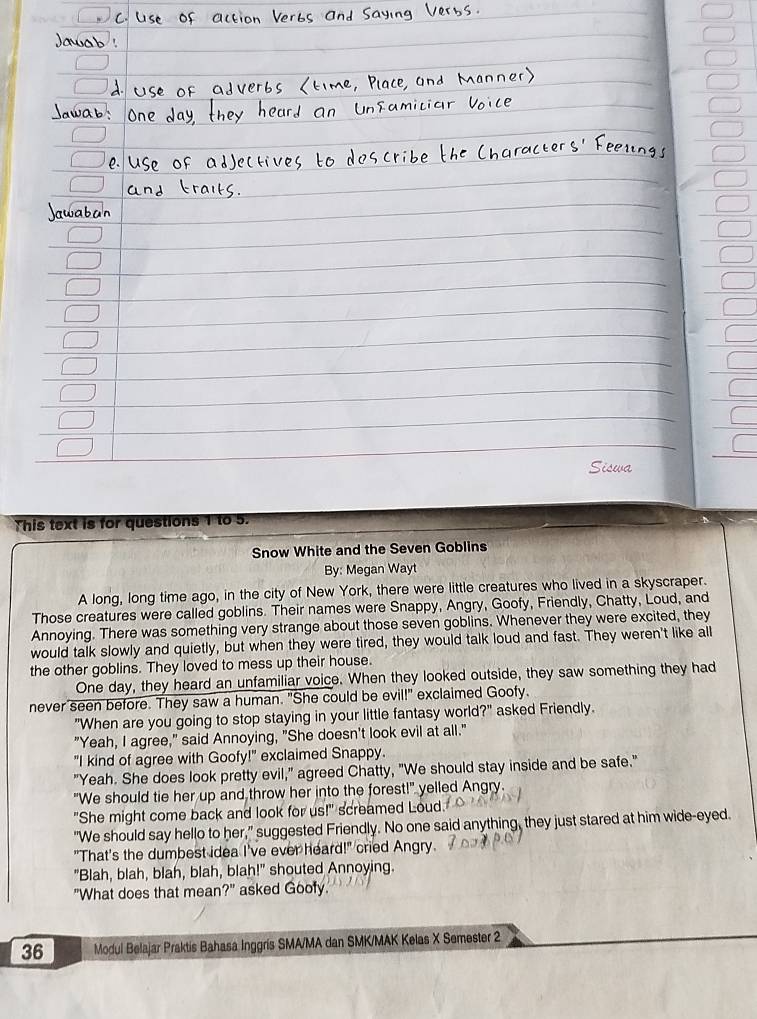 c. Use of action Verbs and Saying Verbs.
Jawab:
d. Use of adverbs (time, Place, and Manner)
Jawab: One day, they heard an Unfamiliar Voice
e. Use of adjectives to describe the Characters' Feelings
and traits.
Jawaban
Siswa
This text is for questions 1 to 5.
Snow White and the Seven Goblins
By: Megan Wayt
A long, long time ago, in the city of New York, there were little creatures who lived in a skyscraper.
Those creatures were called goblins. Their names were Snappy, Angry, Goofy, Friendly, Chatty, Loud, and
Annoying. There was something very strange about those seven goblins. Whenever they were excited, they
would talk slowly and quietly, but when they were tired, they would talk loud and fast. They weren't like all
the other goblins. They loved to mess up their house.
One day, they heard an unfamiliar voice. When they looked outside, they saw something they had
never seen before. They saw a human. "She could be evil!" exclaimed Goofy.
"When are you going to stop staying in your little fantasy world?" asked Friendly.
"Yeah, I agree," said Annoying, "She doesn't look evil at all."
"I kind of agree with Goofy!" exclaimed Snappy.
"Yeah. She does look pretty evil," agreed Chatty, "We should stay inside and be safe."
"We should tie her up and throw her into the forest!" yelled Angry.
"She might come back and look for us!" screamed Loud.
"We should say hello to her," suggested Friendly. No one said anything, they just stared at him wide-eyed.
"That's the dumbest idea I've ever heard!" cried Angry.
"Blah, blah, blah, blah, blah!" shouted Annoying.
"What does that mean?" asked Goofy.
36 Modul Belajar Praktis Bahasa Inggris SMA/MA dan SMK/MAK Kelas X Semester 2